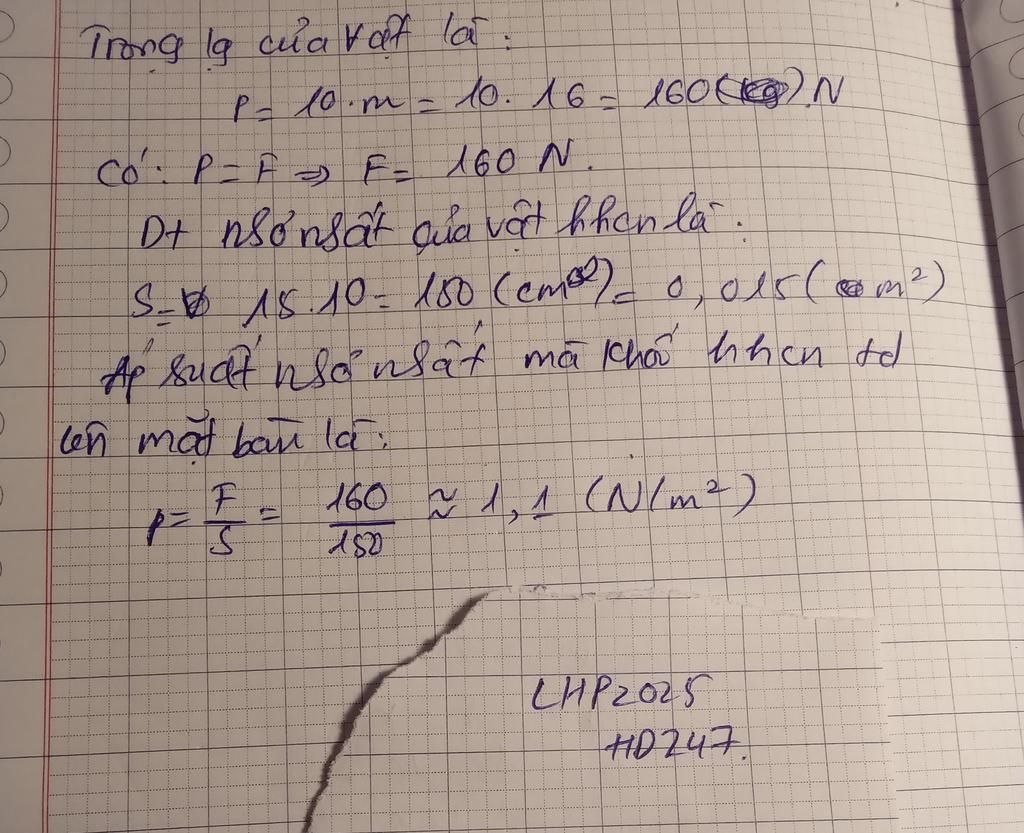 Trọng lg của vật là:
P = 10.m = 10. 16 = 160 () N
Có: P = F => F = 160 N.
Dt nhỏ nhất của vật hhcn là:
S = 15.10 = 150 (cm²) = 0,015 (m²)
Áp suất nhỏ nhất mà khối hhcn td
lên mặt bàn là:
p = F/S = 160/150 ≈ 1,1 (N/m²)
LHP2025
HD247.